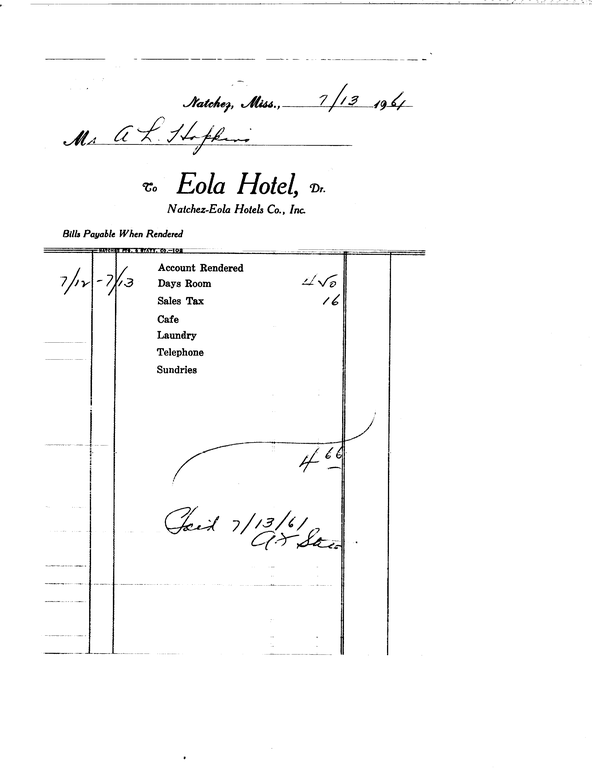 Natchez, Miss., 7/13 1961
Mr A L Hopkins
To Eola Hotel, Dr.
Natchez-Eola Hotels Co., Inc.
Bills Payable When Rendered
NATCHEZ PTG. & STATY. CO.—102
Account Rendered
7/12 - 7/13 Days Room 4 50
Sales Tax 16
Cafe
Laundry
Telephone
Sundries
4 66
Paid 7/13/61